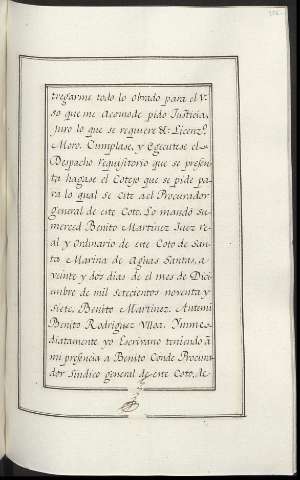 tregarme todo lo obrado para el V.
so que me acomode pido Justicia,
juro lo que se requiere &: Licenz.º
Moro. Cumplase, y Egecutese el
Despacho requisitorio que se presen
ta hagase el Cotejo que se pide pa
ra lo qual se Cite ael Procurador
general de este Coto. Lo mandó su
merced Benito Martinez Juez re
al y Ordinario de este Coto de San
ta Marina de Aguas Santas, a
veinte y dos dias de el mes de Dici
embre de mil setecientos noventa y
siete. Benito Martinez. Antemi
Benito Rodriguez Ulloa. Ynme
diatamente yo Escrivano teniendo à
mi presencia a Benito Conde Procura
dor Sindico general de este Coto, de